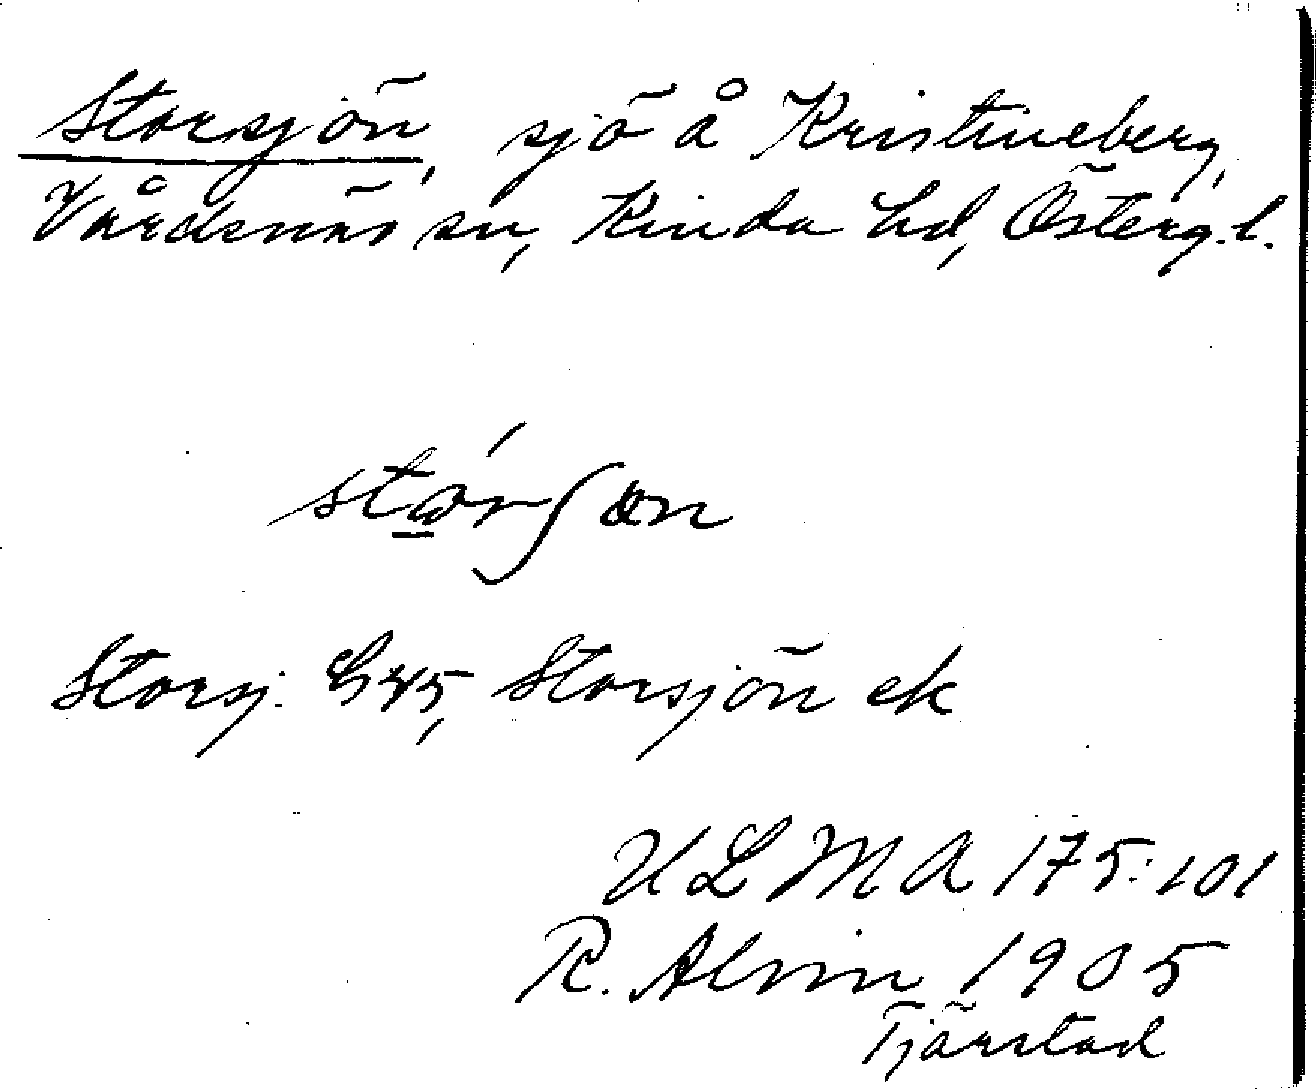 Storsjön, sjö å Kristineberg,
Vårdsnäs sn, Kinda hd, Österg.l.
stórʃɒn
Storsj. G45, Storsjön ek
ULMA 175:101
R. Alvin 1905
Tjärstad